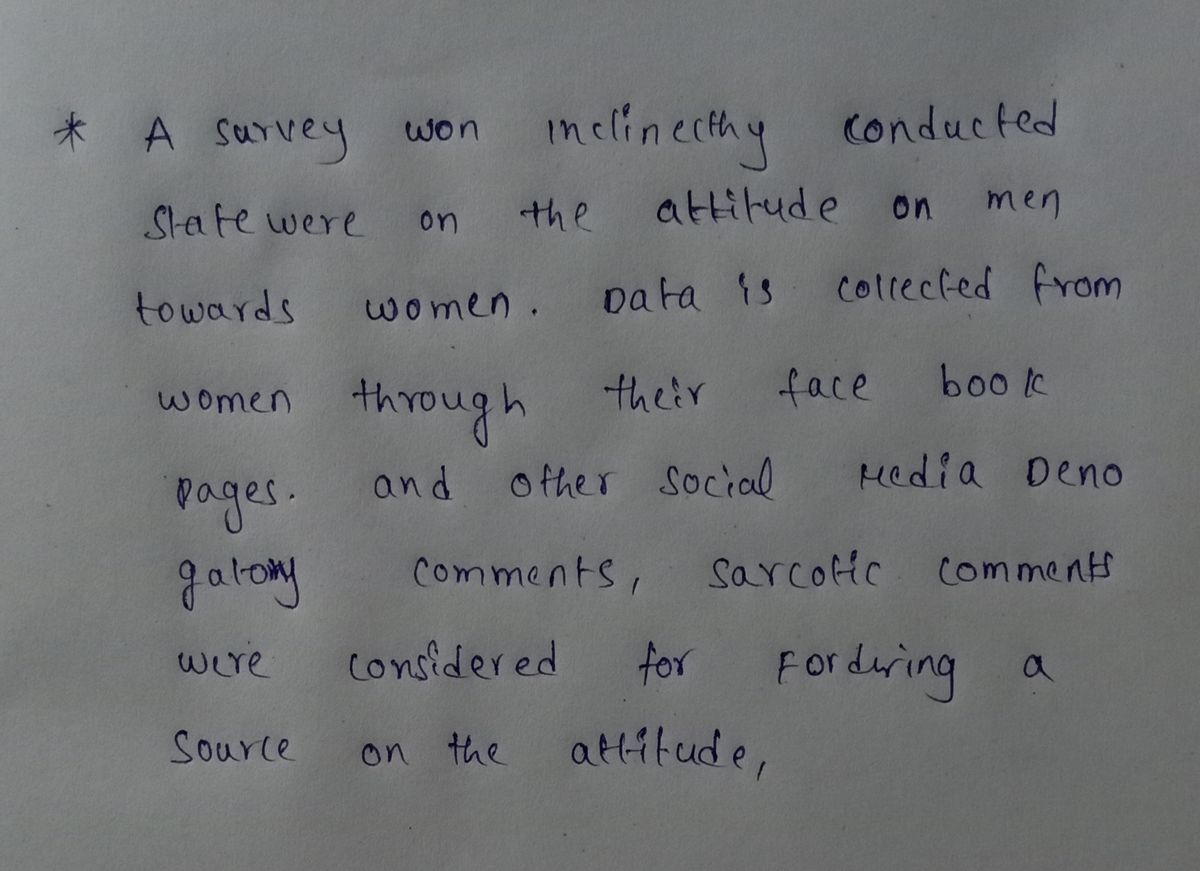 * A survey won inclinecthy conducted
State were on the attitude on men
towards women. Data is collected from
women through their face book
pages. and other social Media Deno
galony comments, sarcotic comments
were considered for Forduring a
source on the attitude,